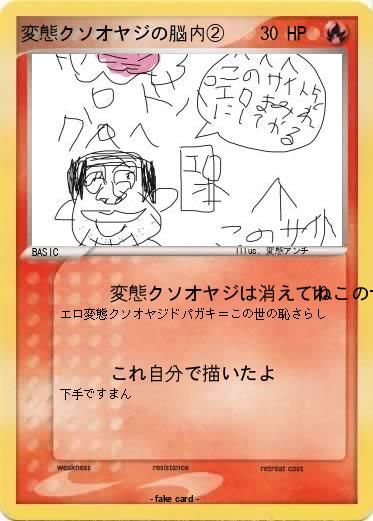 変態クソオヤジの脳内② 30 HP
このサイト
エロ
まみれ
にしてやる
グヘヘ
エロ
本
↑
このサイト
BASIC
Illus. 変態アンチ
変態クソオヤジは消えてね
エロ変態クソオヤジドバガキ＝この世の恥さらし
これ自分で描いたよ
下手ですまん
weakness resistance retreat cost
- fake card -